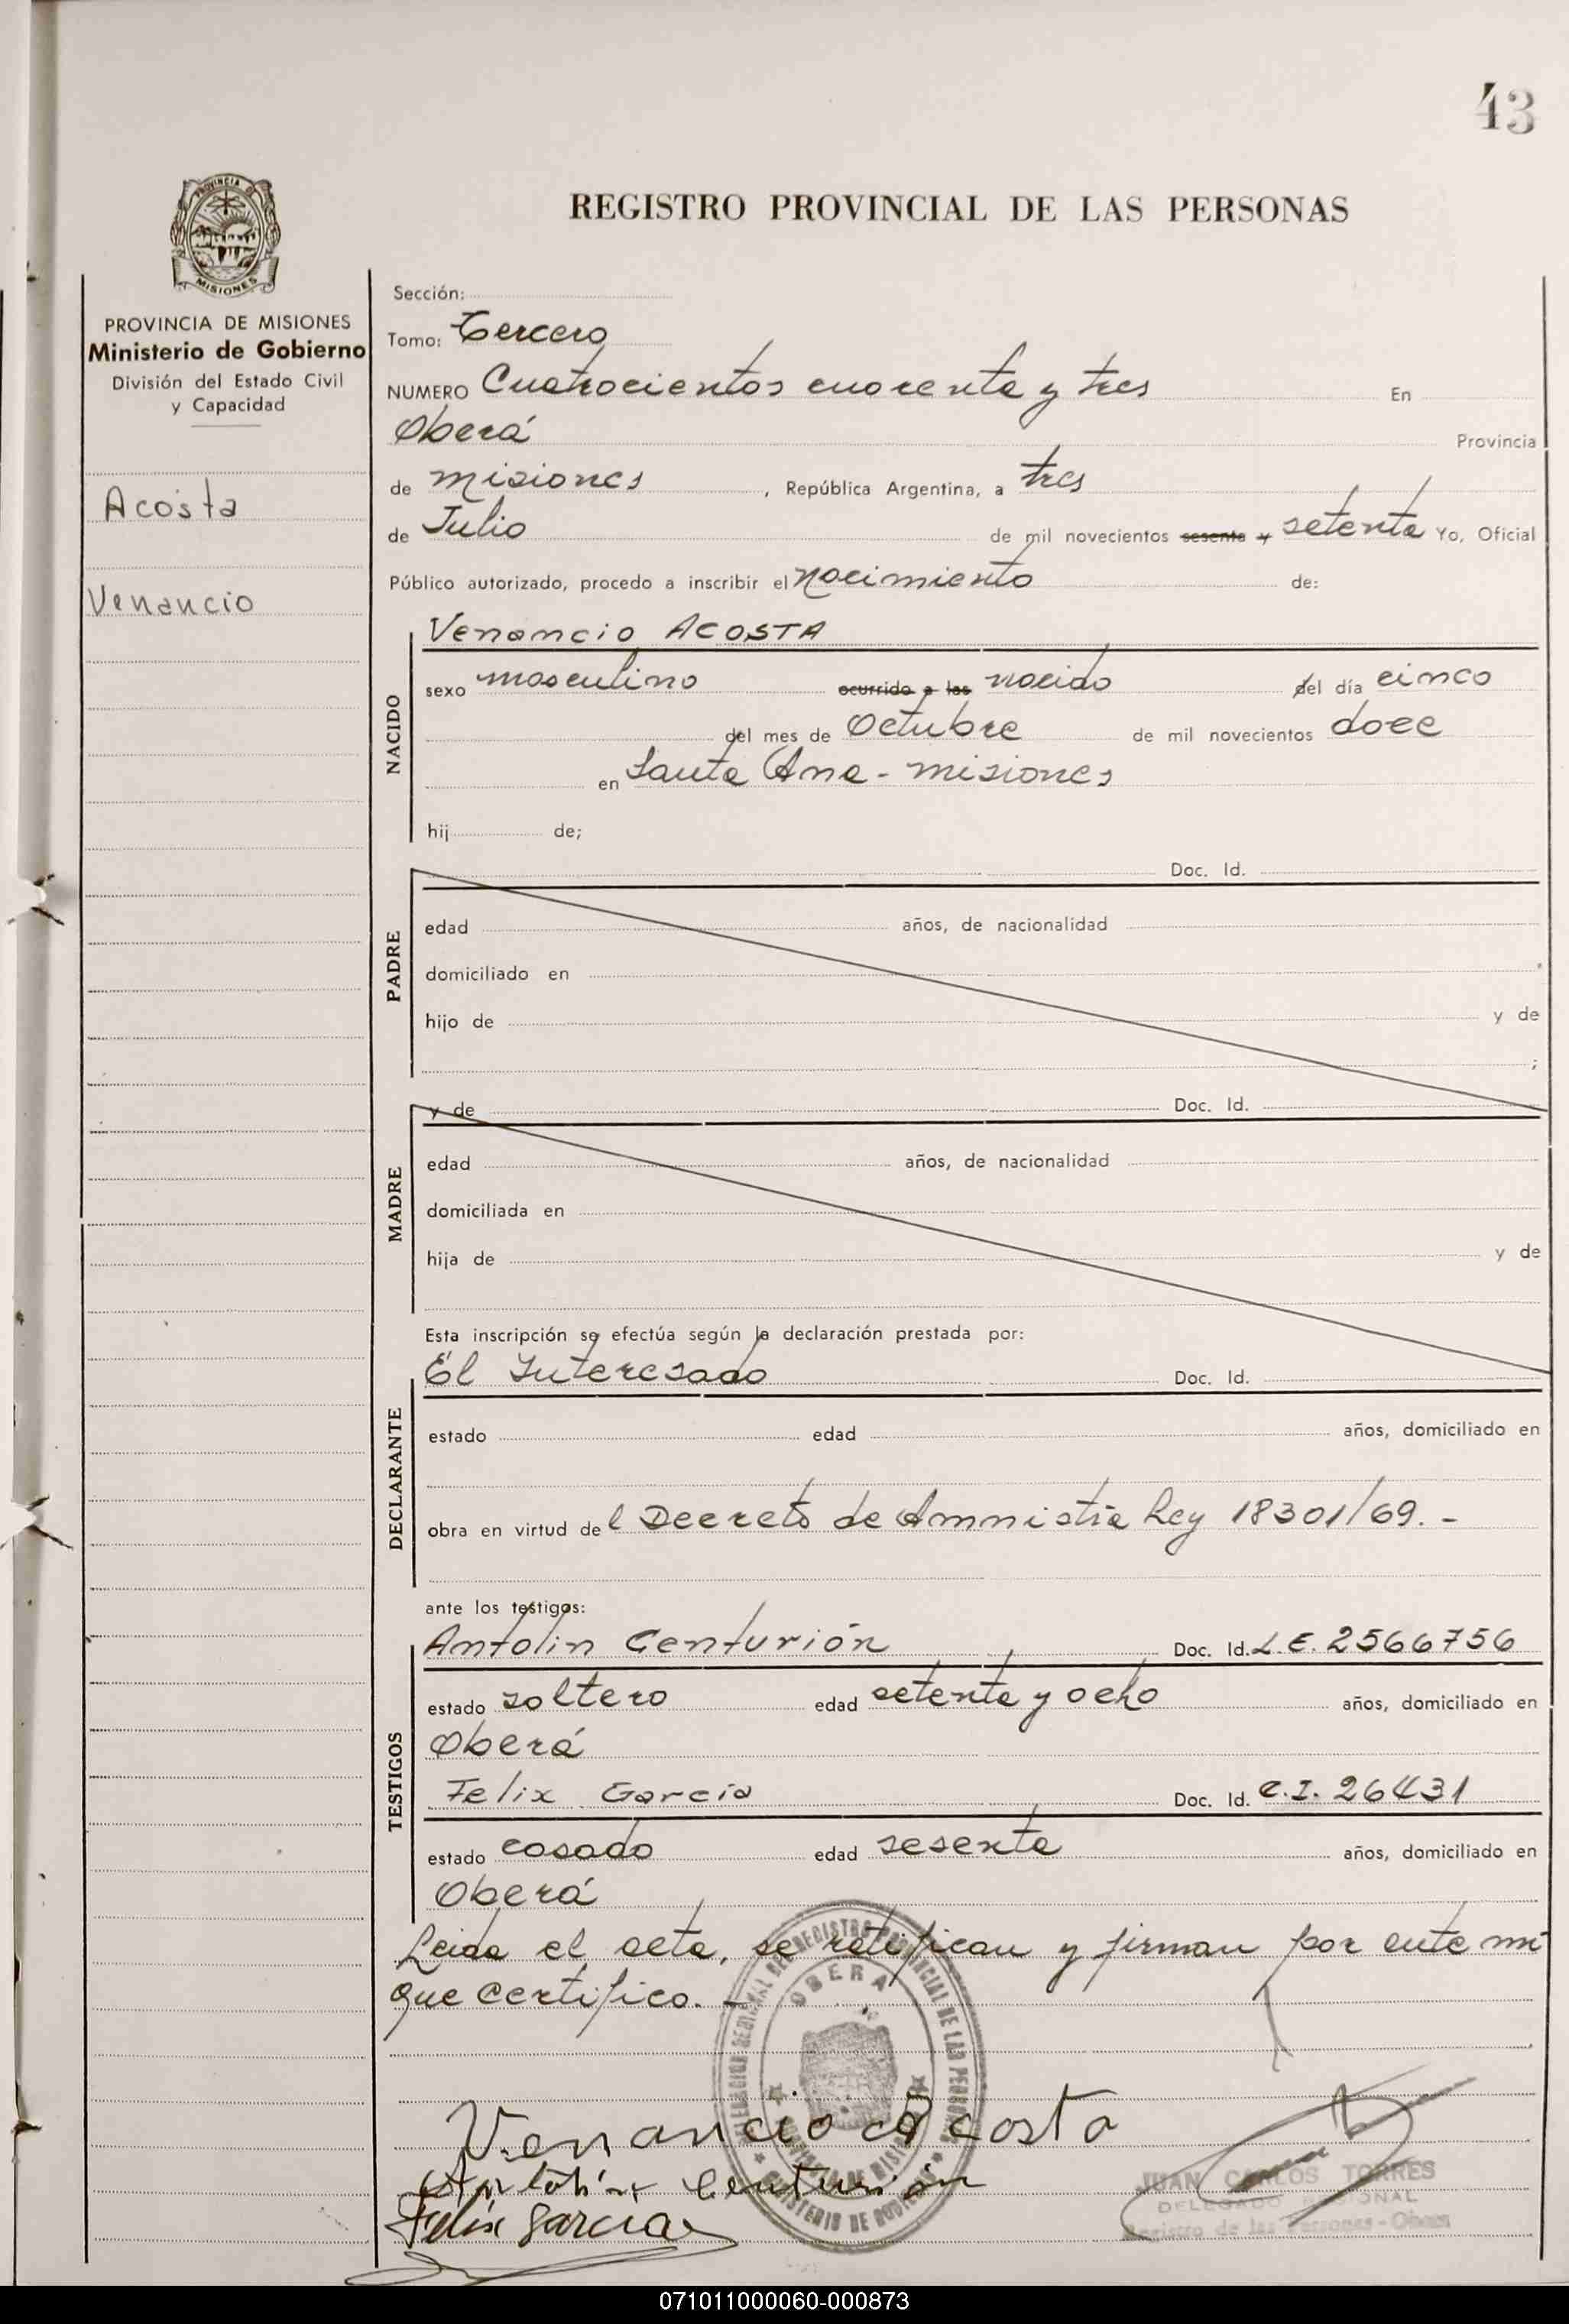 43
PROVINCIA DE
MISIONES
REGISTRO PROVINCIAL DE LAS PERSONAS
PROVINCIA DE MISIONES
Ministerio de Gobierno
División del Estado Civil
y Capacidad
Acosta
Venancio
Sección:
Tomo: Tercero
NUMERO Cuatrocientos cuarenta y tres En
Oberá Provincia
de Misiones, República Argentina, a tres
de Julio de mil novecientos sesenta y setenta Yo, Oficial
Público autorizado, procedo a inscribir el nacimiento de:
NACIDO
Venancio ACOSTA
sexo masculino ocurrido a las nacido del día cinco
del mes de Octubre de mil novecientos doce
en Santa Ana - Misiones
hij de;
PADRE
Doc. Id.
edad años, de nacionalidad
domiciliado en
hijo de y de
;
MADRE
y de Doc. Id.
edad años, de nacionalidad
domiciliada en
hija de y de
Esta inscripción se efectúa según la declaración prestada por:
DECLARANTE
El Interesado Doc. Id.
estado edad años, domiciliado en
obra en virtud del Decreto de Amnistía Ley 18301/69.-
ante los testigos:
TESTIGOS
Antolin Centurión Doc. Id. L.E. 2566756
estado soltero edad setenta y ocho años, domiciliado en
Oberá
Felix Garcia Doc. Id. C.I. 26431
estado casado edad sesenta años, domiciliado en
Oberá
Leida el acta, se ratifican y firman por ante mi
que certifico.-
DELEGACION REGIONAL DEL REGISTRO PROVINCIAL DE LAS PERSONAS
OBERA
PROVINCIA DE MISIONES
MINISTERIO DE GOBIERNO
Venancio Acosta
Antolin Centurión
Felix Garcia
JUAN CARLOS TORRES
DELEGADO REGIONAL
Registro de las Personas - Obera
071011000060-000873